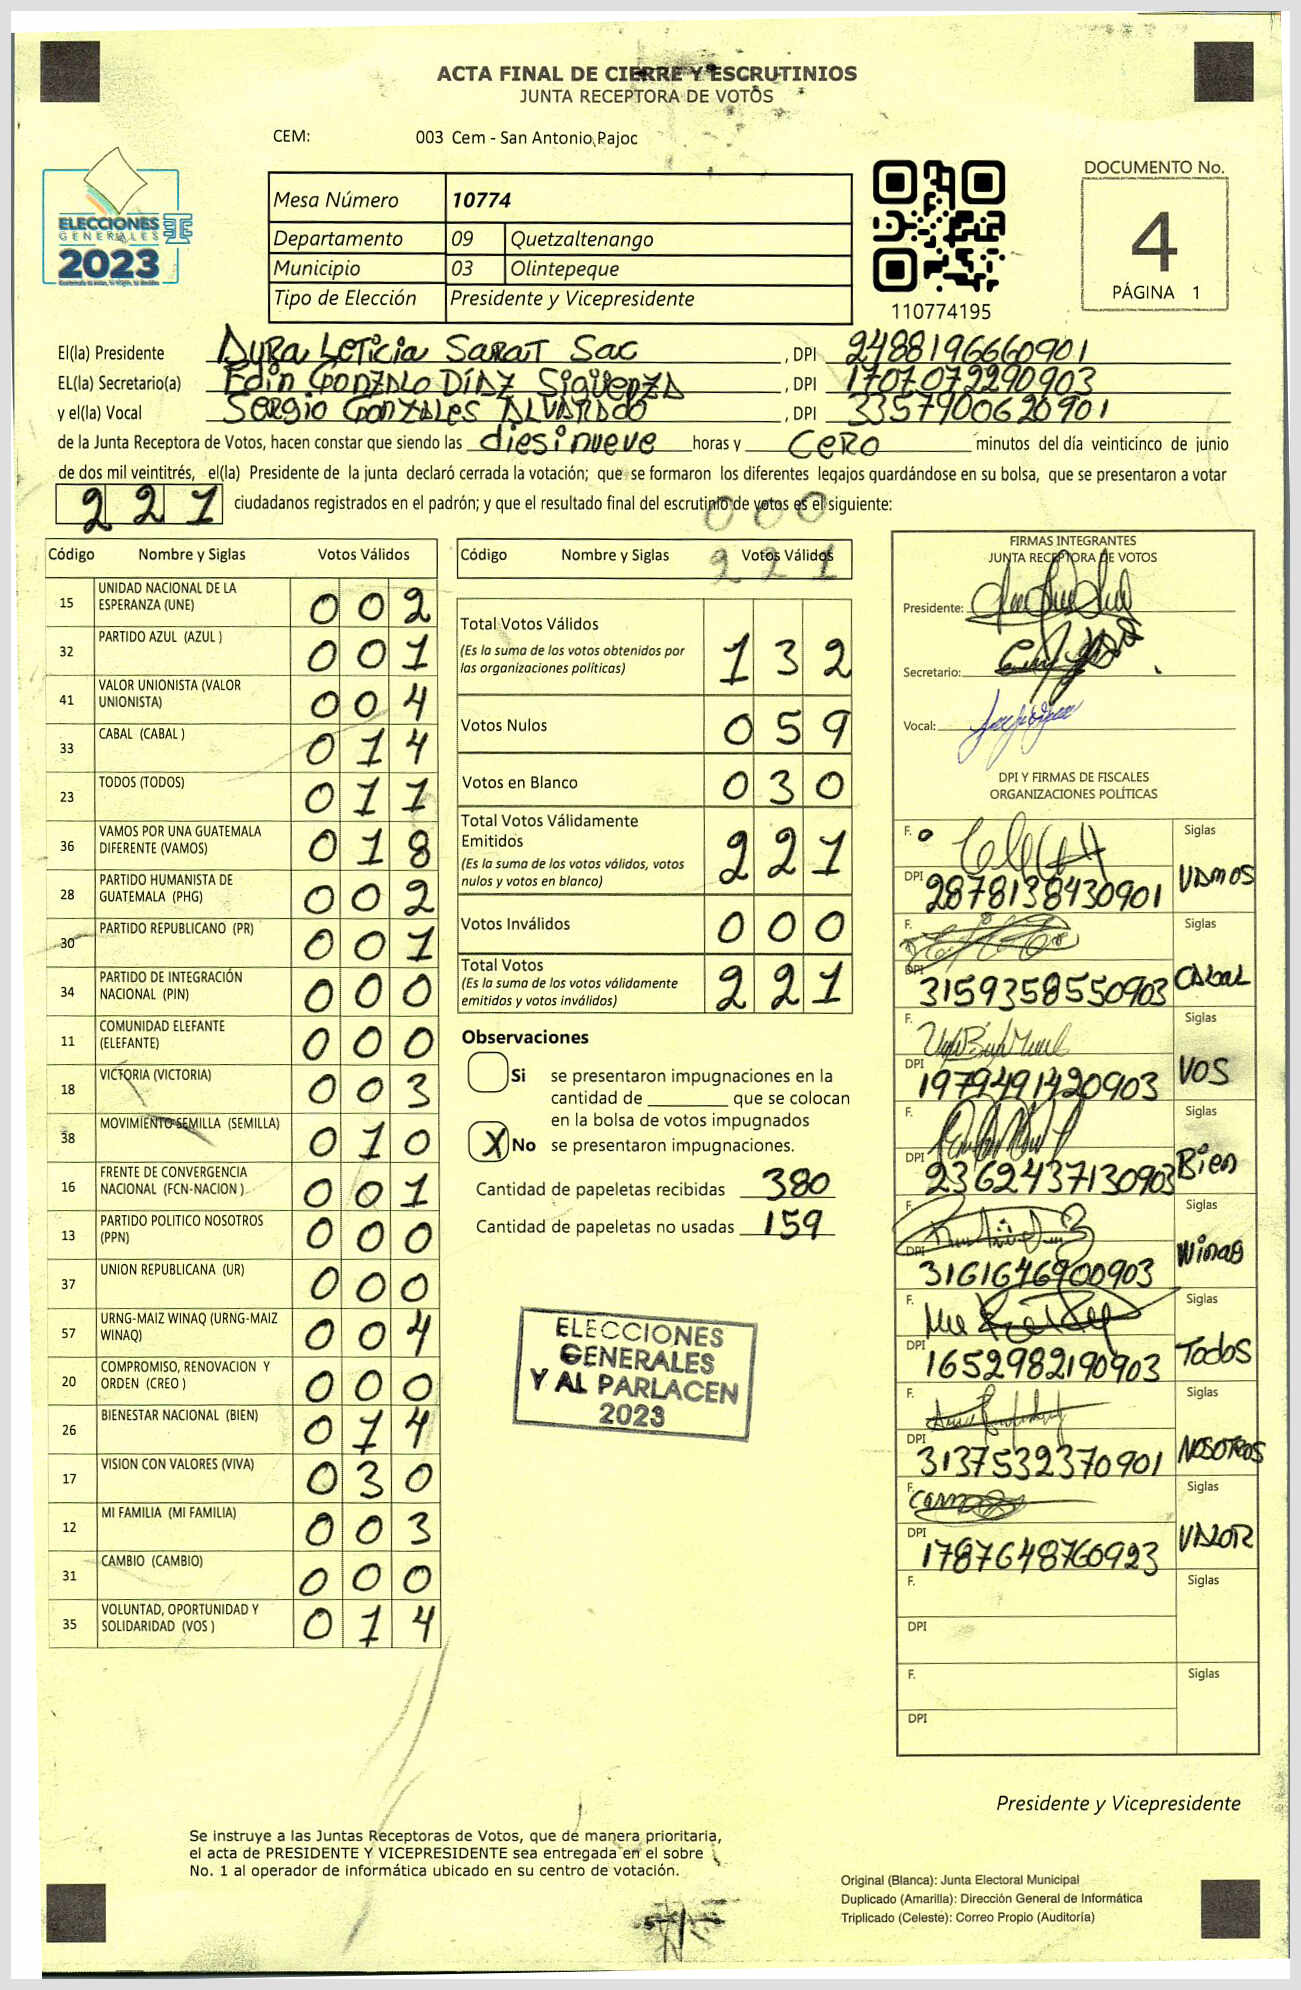 ACTA FINAL DE CIERRE Y ESCRUTINIOS
JUNTA RECEPTORA DE VOTOS
CEM: 003 Cem - San Antonio Pajoc
ELECCIONES
GENERALES
2023
Mesa Número 10774
Departamento 09 Quetzaltenango
Municipio 03 Olintepeque
Tipo de Elección Presidente y Vicepresidente
110774195
DOCUMENTO No.
4
PÁGINA 1
El(la) Presidente Dyra Leticia Sarat Sac, DPI 2488196660901
EL(la) Secretario(a) Edin Gonzalo Díaz Sigüenza, DPI 1707072290903
y el(la) Vocal Sergio Gonzales Alvarado, DPI 3357900620901
de la Junta Receptora de Votos, hacen constar que siendo las diesinueve horas y cero minutos del día veinticinco de junio
de dos mil veintitrés, el(la) Presidente de la junta declaró cerrada la votación; que se formaron los diferentes legajos guardándose en su bolsa, que se presentaron a votar
221 ciudadanos registrados en el padrón; y que el resultado final del escrutinio de votos es el siguiente:
000
221
Código Nombre y Siglas Votos Válidos
15 UNIDAD NACIONAL DE LA ESPERANZA (UNE) 002
32 PARTIDO AZUL (AZUL ) 001
41 VALOR UNIONISTA (VALOR UNIONISTA) 004
33 CABAL (CABAL ) 014
23 TODOS (TODOS) 011
36 VAMOS POR UNA GUATEMALA DIFERENTE (VAMOS) 018
28 PARTIDO HUMANISTA DE GUATEMALA (PHG) 002
30 PARTIDO REPUBLICANO (PR) 001
34 PARTIDO DE INTEGRACIÓN NACIONAL (PIN) 000
11 COMUNIDAD ELEFANTE (ELEFANTE) 000
18 VICTORIA (VICTORIA) 003
38 MOVIMIENTO SEMILLA (SEMILLA) 010
16 FRENTE DE CONVERGENCIA NACIONAL (FCN-NACION ) 001
13 PARTIDO POLITICO NOSOTROS (PPN) 000
37 UNION REPUBLICANA (UR) 000
57 URNG-MAIZ WINAQ (URNG-MAIZ WINAQ) 004
20 COMPROMISO, RENOVACION Y ORDEN (CREO ) 000
26 BIENESTAR NACIONAL (BIEN) 014
17 VISION CON VALORES (VIVA) 030
12 MI FAMILIA (MI FAMILIA) 003
31 CAMBIO (CAMBIO) 000
35 VOLUNTAD, OPORTUNIDAD Y SOLIDARIDAD (VOS ) 014
Código Nombre y Siglas Votos Válidos
Total Votos Válidos 132
(Es la suma de los votos obtenidos por
las organizaciones políticas)
Votos Nulos 059
Votos en Blanco 030
Total Votos Válidamente
Emitidos 221
(Es la suma de los votos válidos, votos
nulos y votos en blanco)
Votos Inválidos 000
Total Votos 221
(Es la suma de los votos válidamente
emitidos y votos inválidos)
Observaciones
Si se presentaron impugnaciones en la
cantidad de ________ que se colocan
en la bolsa de votos impugnados
X No se presentaron impugnaciones.
Cantidad de papeletas recibidas 380
Cantidad de papeletas no usadas 159
ELECCIONES
GENERALES
Y AL PARLACEN
2023
FIRMAS INTEGRANTES
JUNTA RECEPTORA DE VOTOS
Presidente:
Secretario:
Vocal:
DPI Y FIRMAS DE FISCALES
ORGANIZACIONES POLÍTICAS
F. Siglas
DPI 2878138430901 VAMOS
F. Siglas
DPI 3159358550903 CABAL
F. Siglas
DPI 1979491420903 VOS
F. Siglas
DPI 2362437130903 Bien
F. Siglas
DPI 3161646900903 Winaq
F. Siglas
DPI 1652982190903 Todos
F. Siglas
DPI 3137532370901 NOSOTROS
F. Siglas
DPI 1787648760923 VALOR
F. Siglas
DPI
F. Siglas
DPI
Presidente y Vicepresidente
Se instruye a las Juntas Receptoras de Votos, que de manera prioritaria,
el acta de PRESIDENTE Y VICEPRESIDENTE sea entregada en el sobre
No. 1 al operador de informática ubicado en su centro de votación.
Original (Blanca): Junta Electoral Municipal
Duplicado (Amarilla): Dirección General de Informática
Triplicado (Celeste): Correo Propio (Auditoría)